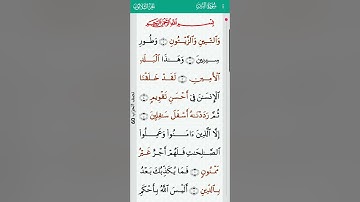 سورة التين
الجزء الثلاثون
بِسْمِ اللَّهِ الرَّحْمَٰنِ الرَّحِيمِ
وَالتِّينِ وَالزَّيْتُونِ ۝ وَطُورِ
سِينِينَ ۝ وَهَٰذَا الْبَلَدِ
الْأَمِينِ ۝ لَقَدْ خَلَقْنَا
الْإِنسَٰنَ فِي أَحْسَنِ تَقْوِيمٍ ۝
ثُمَّ رَدَدْنَٰهُ أَسْفَلَ سَٰفِلِينَ ۝
إِلَّا الَّذِينَ ءَامَنُوا وَعَمِلُوا
الصَّٰلِحَٰتِ فَلَهُمْ أَجْرٌ غَيْرُ
مَمْنُونٍ ۝ فَمَا يُكَذِّبُكَ بَعْدُ
بِالدِّينِ ۝ أَلَيْسَ اللَّهُ بِأَحْكَمِ
نصف الحزب 60